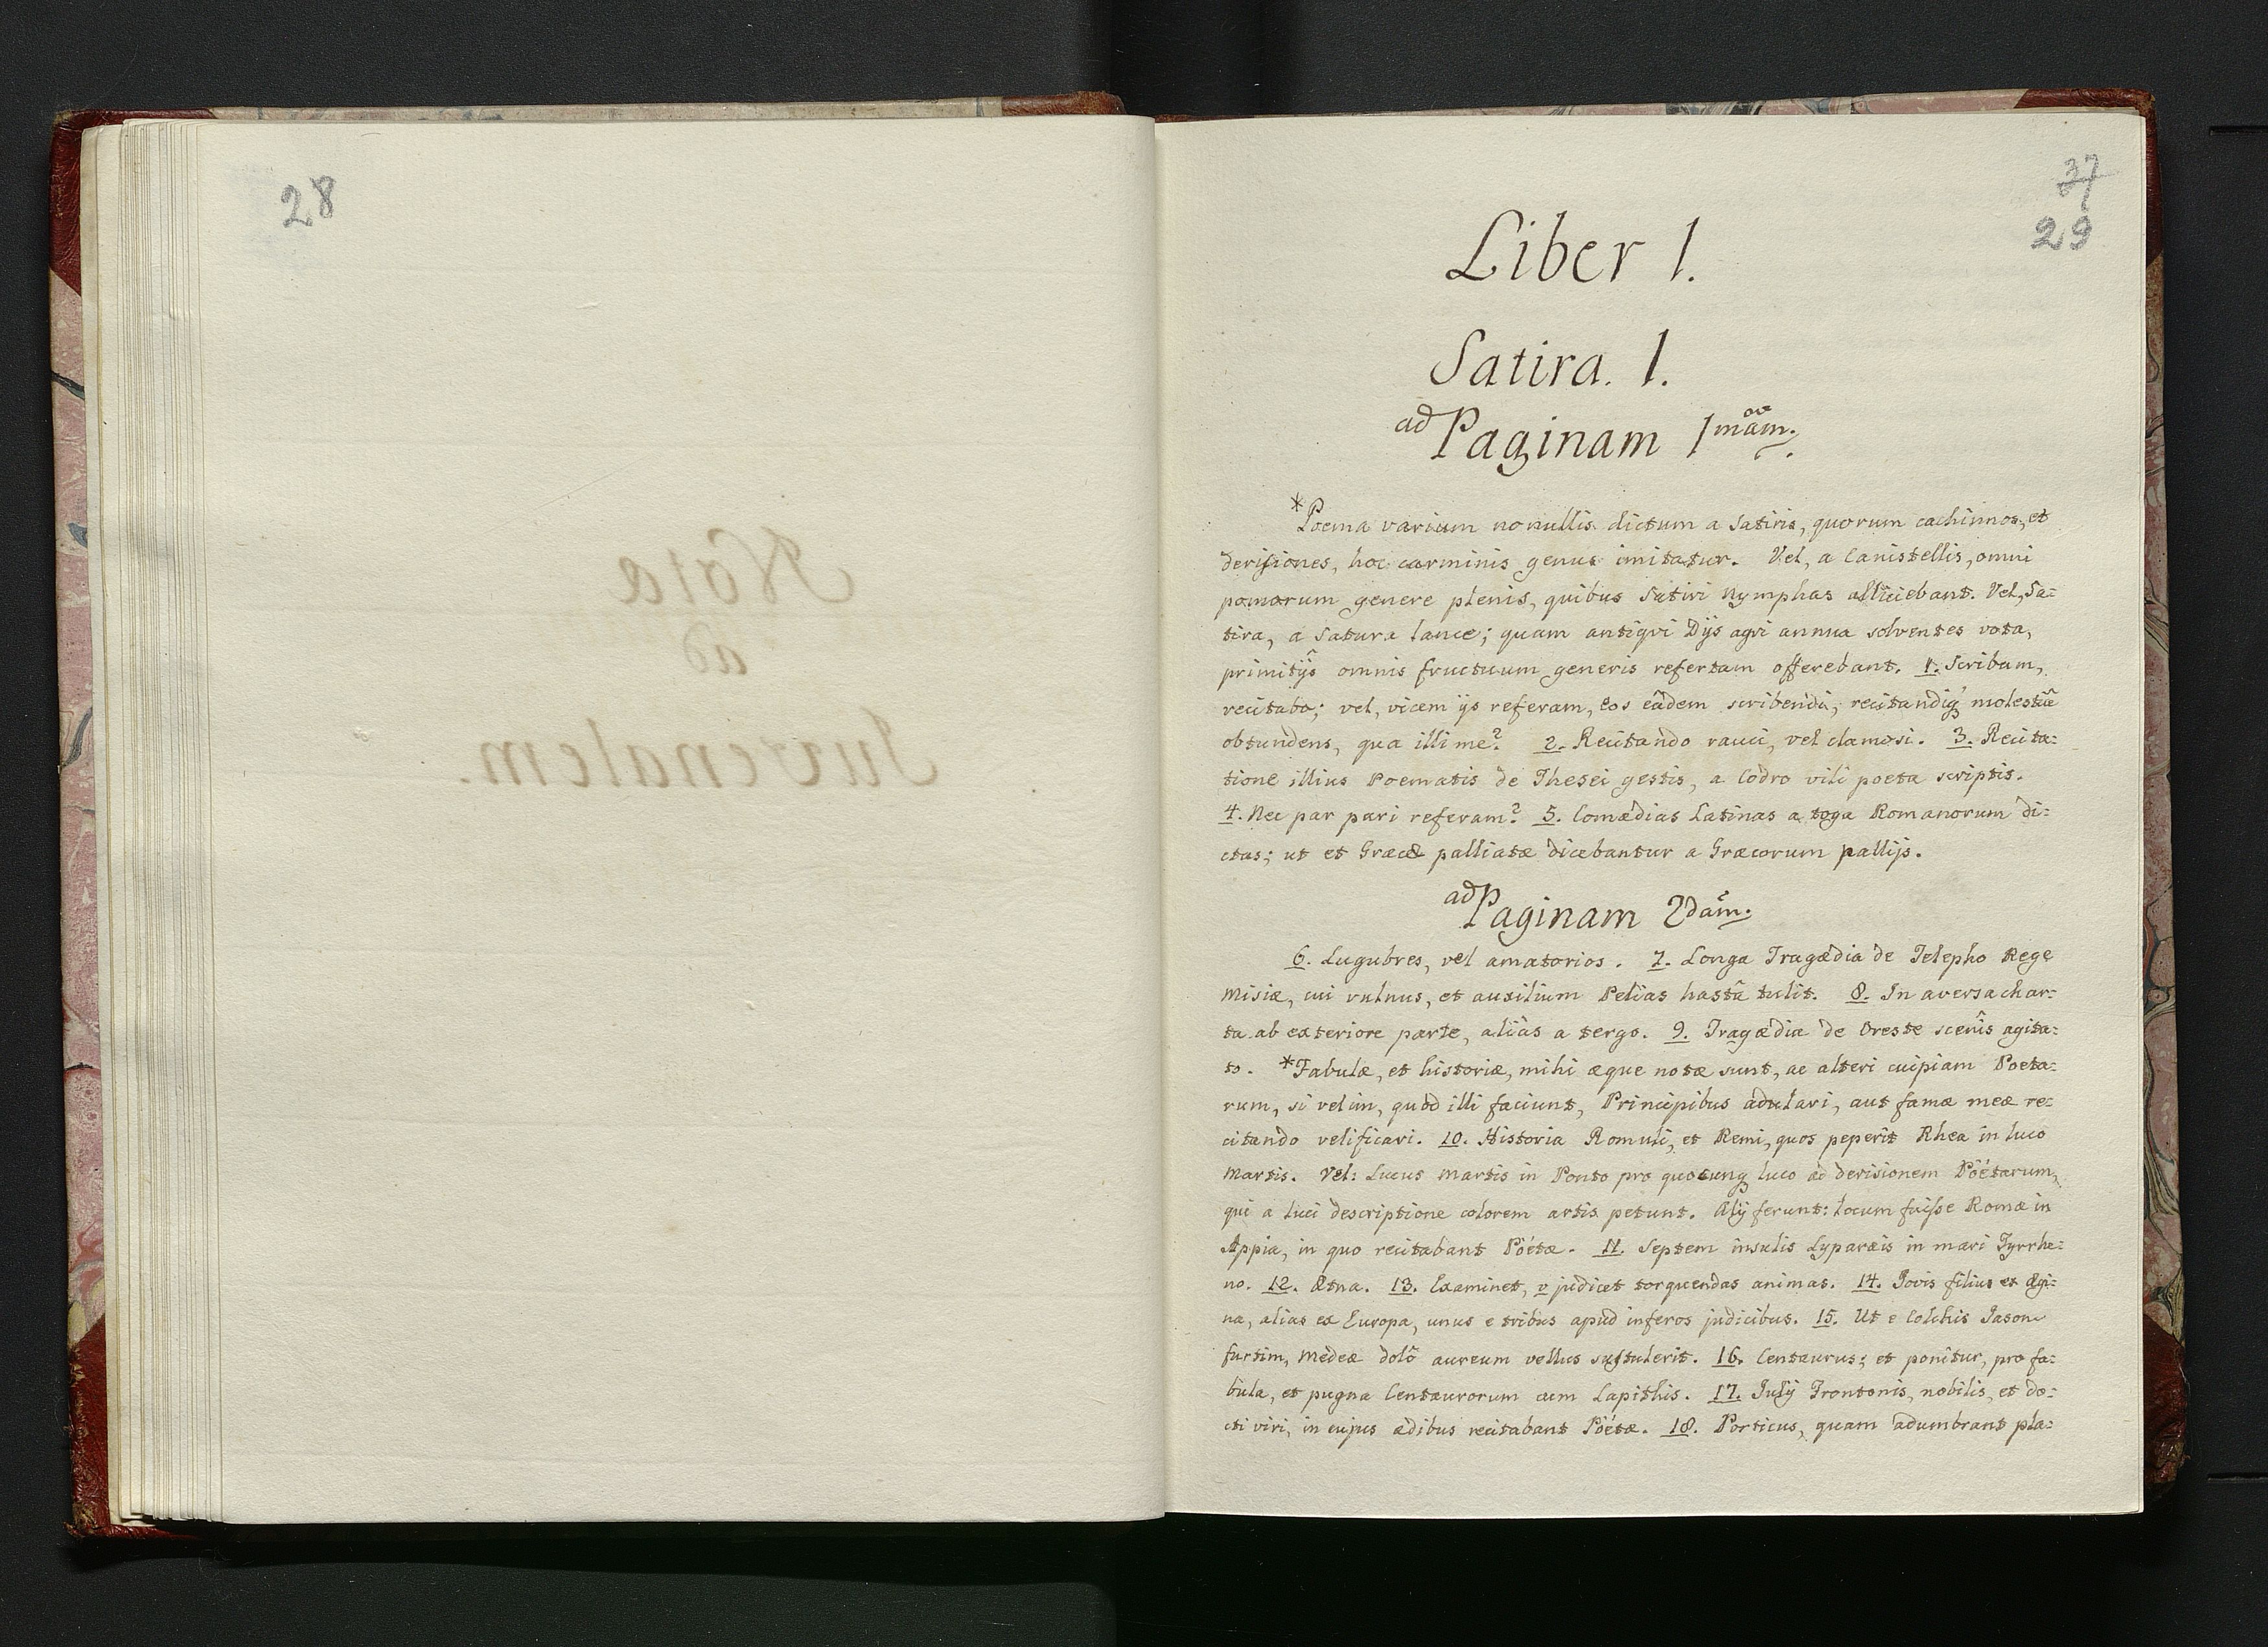 28
37
29
Liber 1.
Satira. 1.
ad Paginam 1mam.
*Poema varium nonullis dictum a Satiris, quorum cachinnos, et
derisiones, hoc carminis genus imitatur. Vel, a Canistellis, omni
pomorum genere plenis, quibus Satiri Nymphas alliciebant. Vel, Sa=
tira, a Satura lance; quam antiqvi Dijs agri annua solventes vota,
primitijs omnis fructuum generis refertam offerebant. 1. Scribam,
recitabo; vel, vicem ijs referam, eos eâdem scribendi, recitandiq́ molestiâ
obtundens, qua illi me? 2. Recitando rauci, vel clamosi. 3. Recita=
tione illius Poematis de Thesei gestis, a Codro vili poeta scriptis.
4. Nec par pari referam? 5. Comædias Latinas a toga Romanorum di=
ctas; ut et Græcæ palliatæ dicebantur a Græcorum pallijs.
ad Paginam 2dam.
6. Lugubres, vel amatorios. 7. Longa Tragædia de Telepho Rege
Misiæ, cui vulnus, et auxilium Pelias hastâ tulit. 8. In aversa char=
ta ab exteriore parte, aliàs a tergo. 9. Tragædia de Oreste scenîs agita=
to. *Fabulæ, et historiæ, mihi æque notæ sunt, ac alteri cuipiam Poeta=
rum, si velim, quod illi faciunt, Principibus adulari, aut famæ meæ re=
citando velificari. 10. Historia Romuli, et Remi, quos peperit Rhea in luco
Martis. Vel: Lucus Martis in Ponto pro quocunq luco ad derisionem Poëtarum,
qui a luci descriptione colorem artis petunt. Alij ferunt: locum fuisse Romæ in
Appia, in quo recitabant Poëtæ. 11. Septem insulis Lyparæis in mari Tyrrhe=
no. 12. Ætna. 13. Examinet, v judicet torquendas animas. 14. Jovis filius ex Ægi=
na, alias ex Europa, unus e tribus apud inferos judicibus. 15. Ut e Colchis Jason
furtim, Medeæ dolô aureum vellus sustulerit. 16. Centaurus; et ponitur, pro fa=
bula, et pugna Centaurorum cum Lapithis. 17. Julij Frontonis, nobilis, et do=
cti viri, in cujus ædibus recitabant Poëtæ. 18. Porticus, quam adumbrant pla=
Nota
ad
Juvenalem.